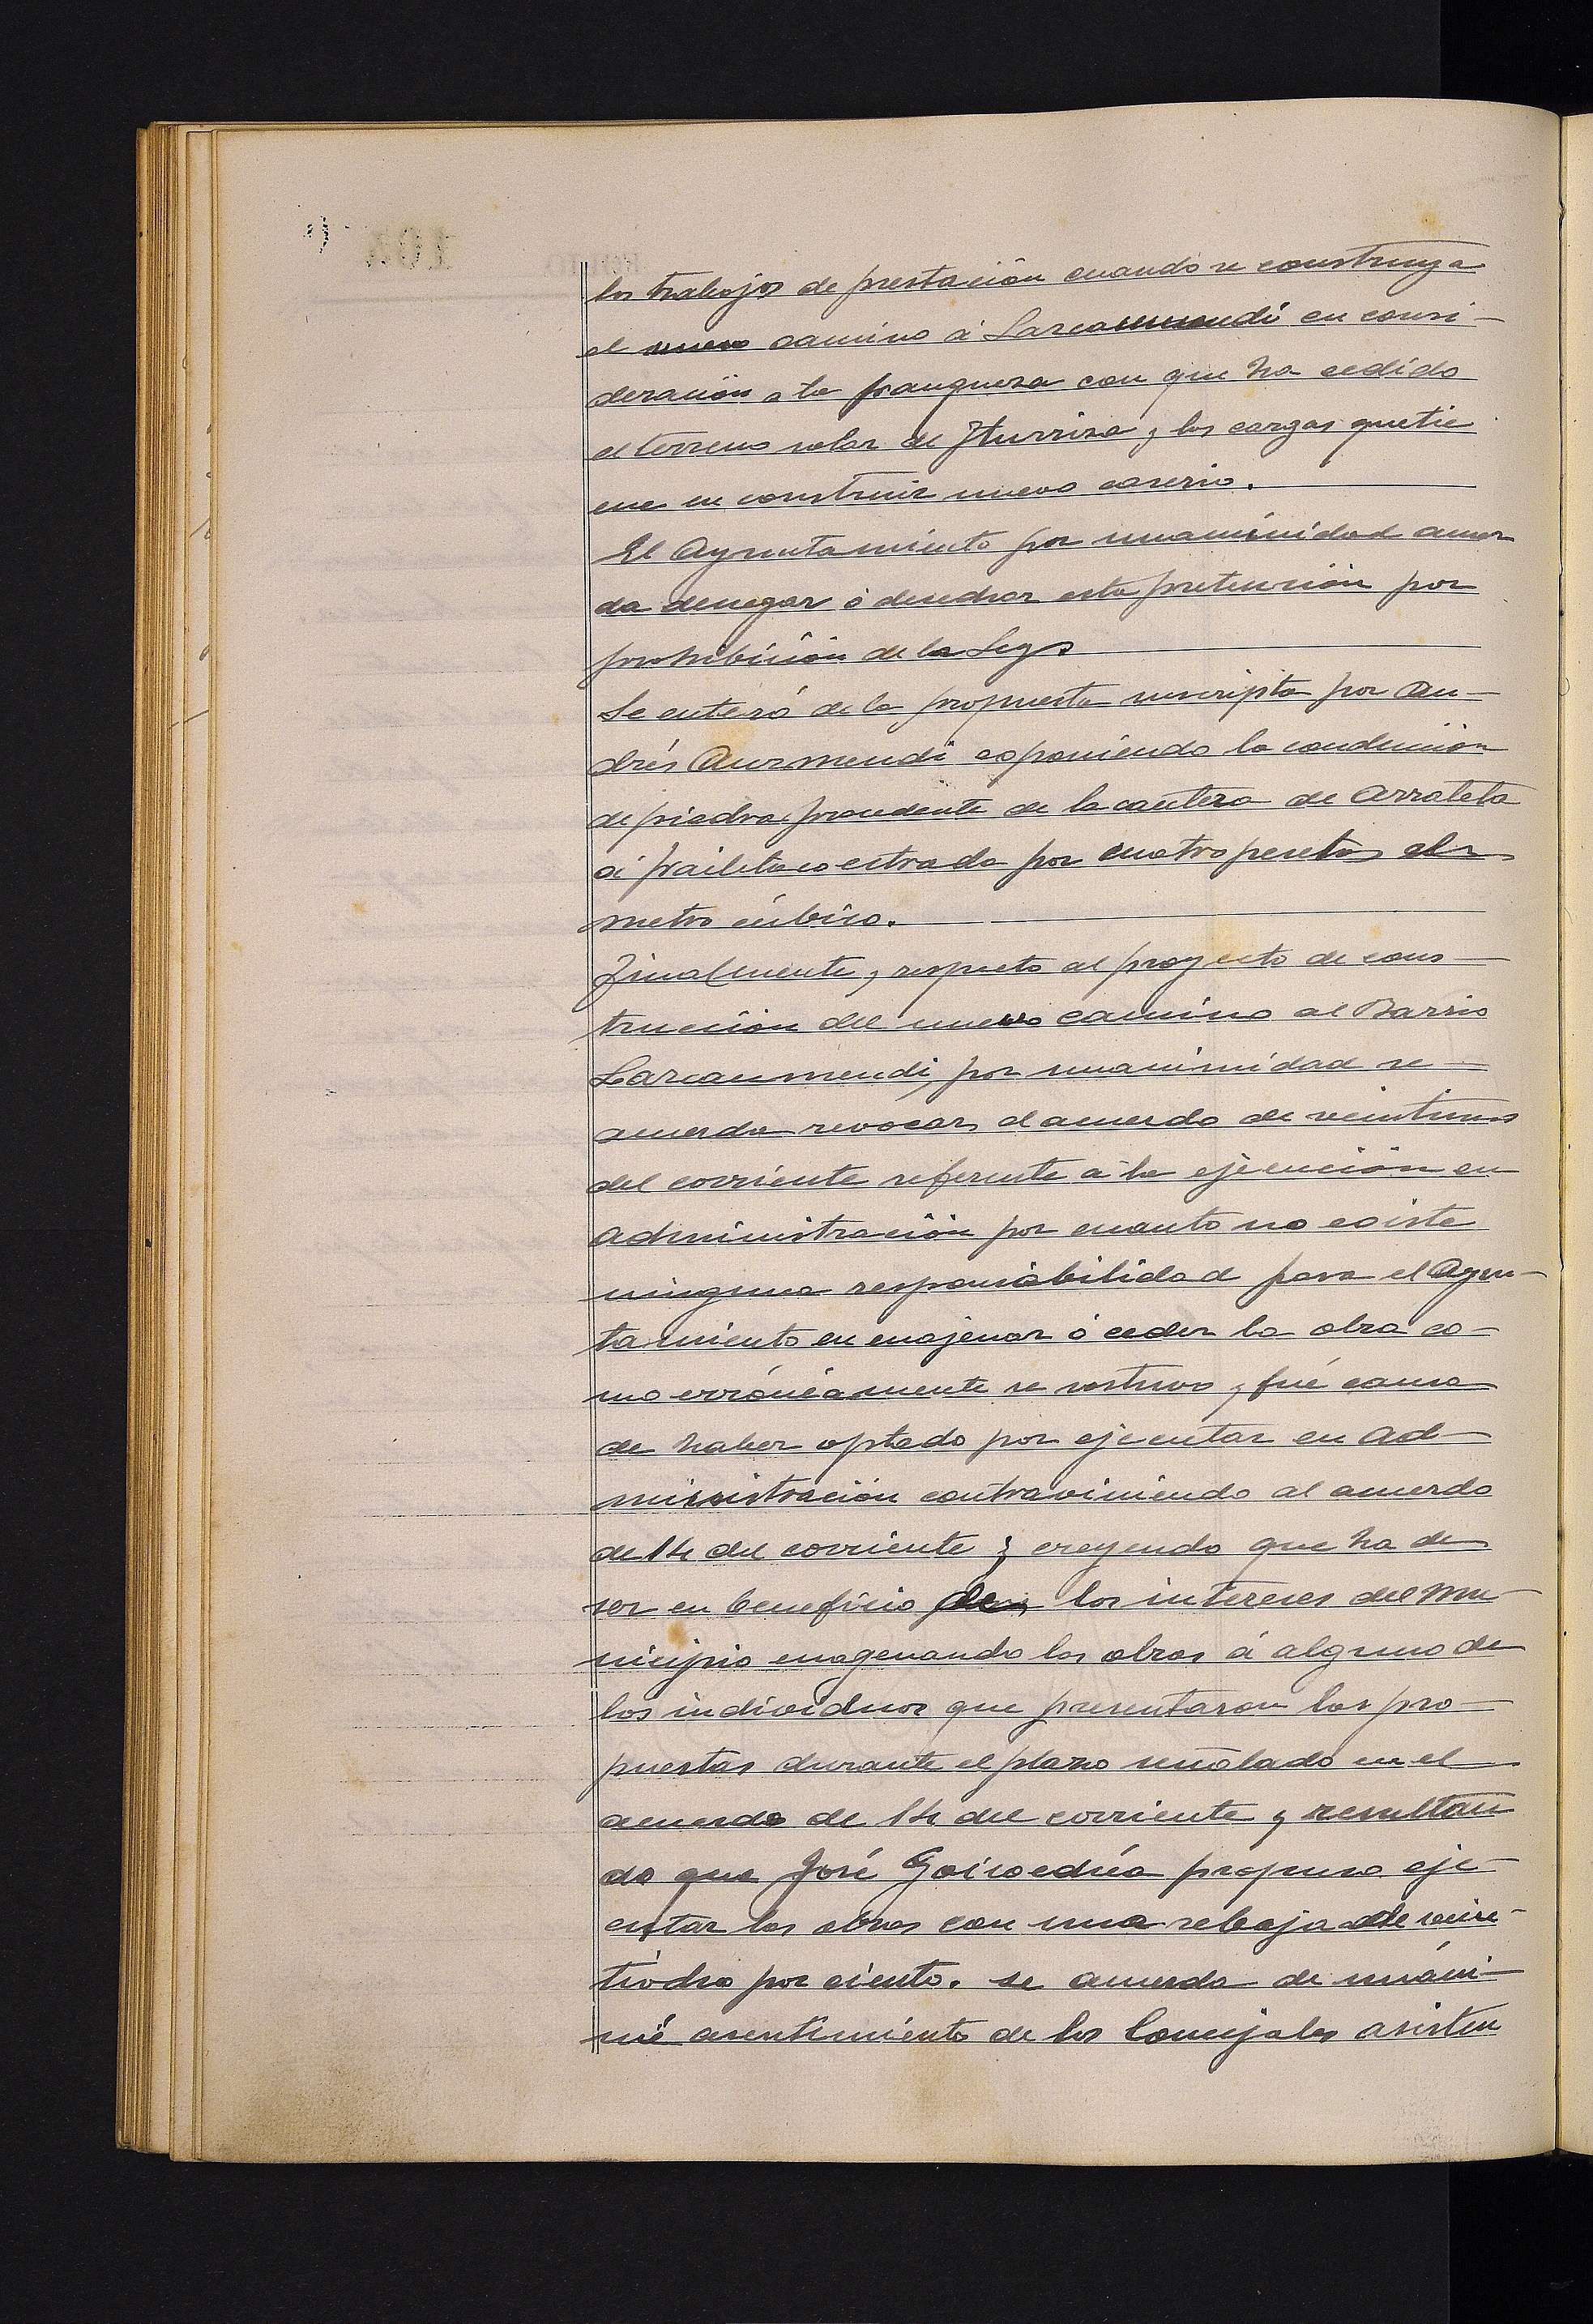 los trabajos de prestación cuando se construya
el nuevo camino á Larcanmendi en consi-
deración a la franqueza con que ha cedido
el terreno solar de Iturriza y las cargas que tie
ene en construir nuevo caserio.
El Ayuntamiento por unanimidad acuer
da denegar ó desechar esta pretención por
prohibición de la Ley
Se enteró de la propuesta suscripta por An-
drés Aurmendi exponiendo la conducción
de piedra procedente de la cantera de Arrateta
á frailetaco estrada por cuatro pesetas el
metro cúbico.
Finalmente, respecto al proyecto de cons-
trucción del nuevo camino al Barrio
Larcanmendi, por unanimidad se
acuerda revocar el acuerdo de veintiuno
del corriente referente á la ejecución en
administración por cuanto no existe
ninguna responsabilidad para el Ayun-
tamiento en enajenar ó ceder la obra co-
mo erróneamente se sostuvo y fué causa
de haber optado por ejecutar en ad-
ministración contraviniendo al acuerdo
de 14 del corriente y creyendo que ha de
ser en beneficio de los intereses del Mu-
nicipio enagenando las obras á alguno de
los individuos que presentaron las pro-
puestas durante el plazo señalado en el
acuerdo de 14 del corriente y resultan
do que José Goicoechéa propuso eje-
cutar las obras con una rebaja de vein-
tiocho por ciento. se acuerda de unáni-
me asentimiento de los Concejales asisten